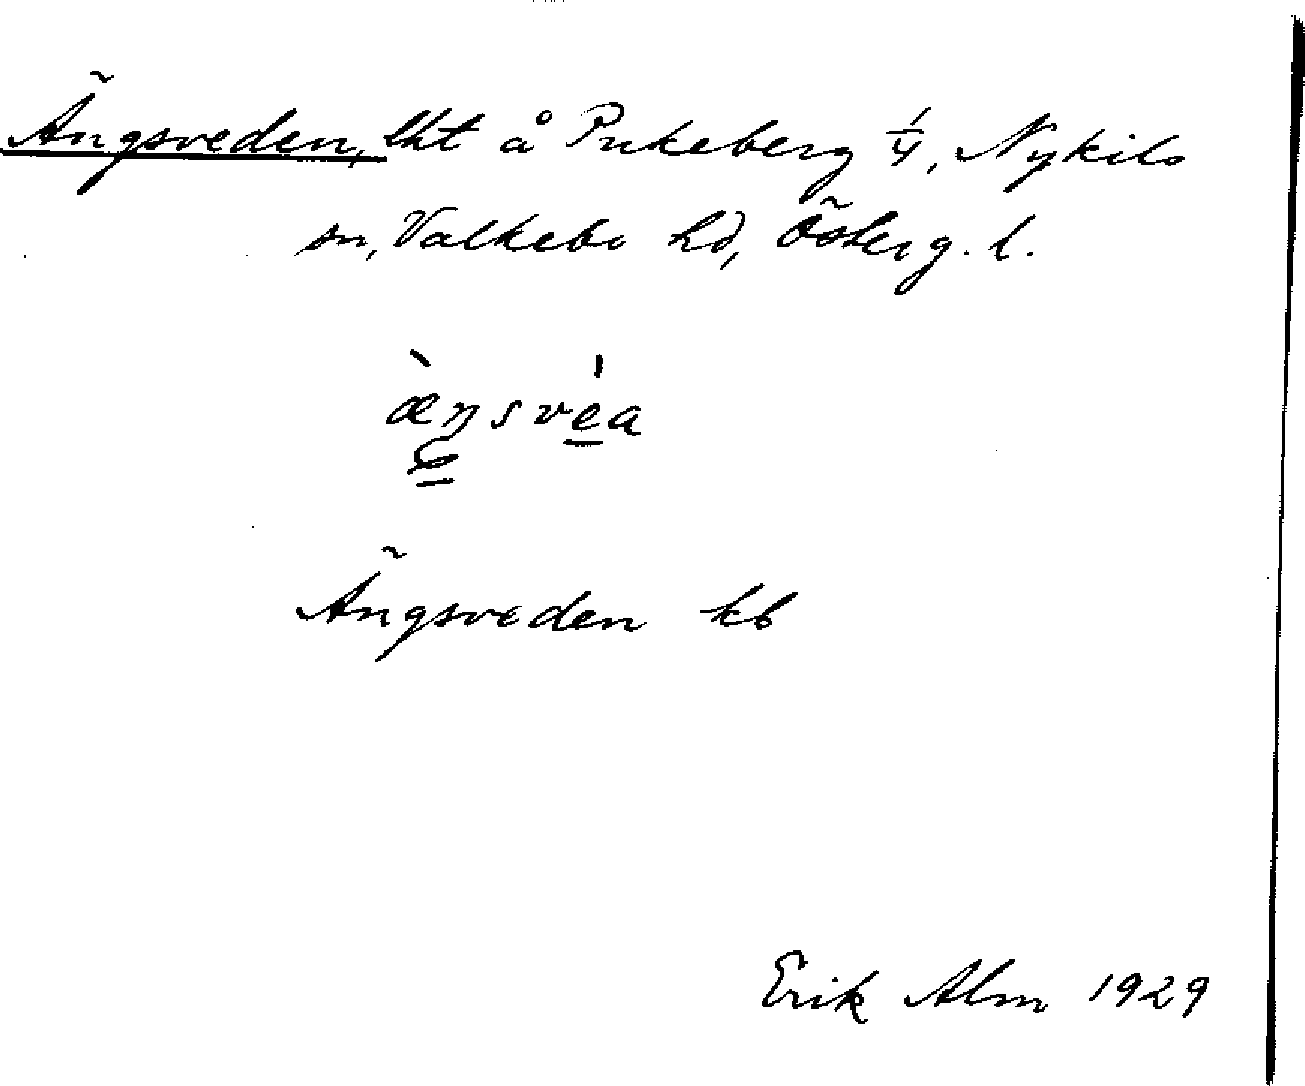 Ängsveden, lht å Pukeberg 1/4, Nykils
sn, Valkebo hd, Österg. l.
æ̀ŋsve̲̍a
Ängsveden kb
Erik Alm 1929